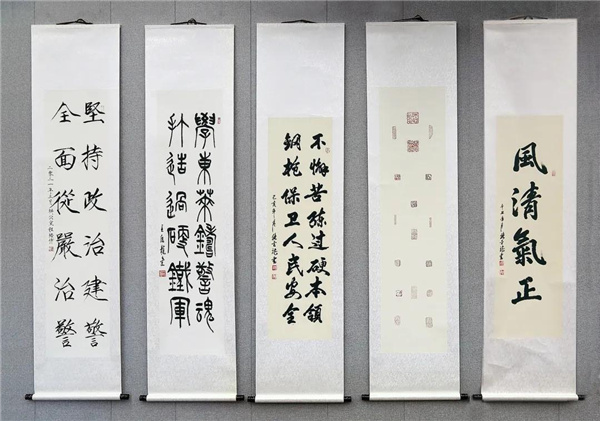 堅持政治建警
全面從嚴治警
學東萊鑄警魂
打造過硬鐵軍
不悔苦练过硬本領
鋼槍保卫人民安全
風清氣正